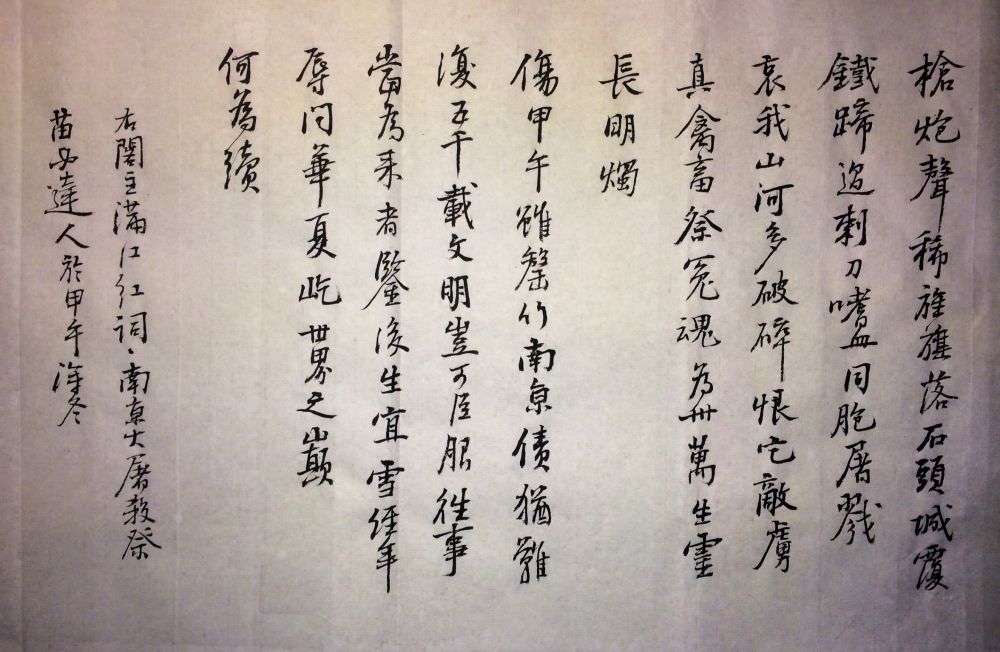 槍炮聲稀旌旗落石頭城覆
鐵蹄過刺刀嗜血同胞屠戮
哀我山河多破碎恨它敵虜
真禽畜祭冤魂為卅萬生靈
長明燭
傷甲午雖罄竹南京債猶難
復五千載文明豈可臣服往事
當為來者鑒後生宜雪經年
辱问華夏屹世界之巔
何為續
右閣主滿江红詞、南京大屠殺祭
苗必達人於甲午